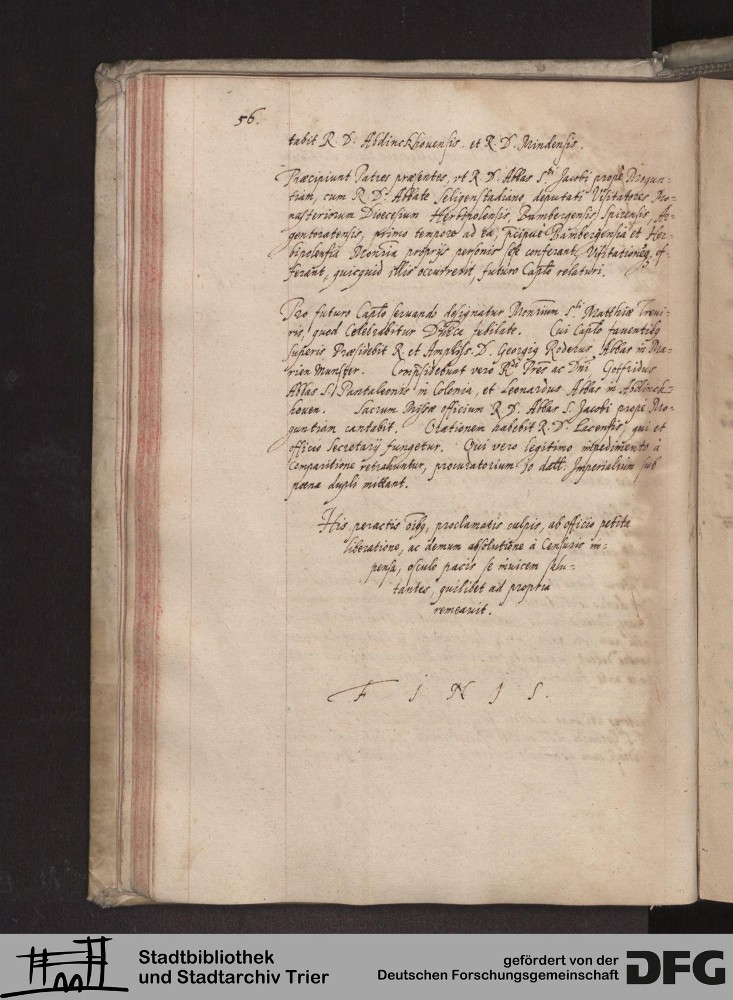 56.
tabit R. D. Abdinckhouensis. et R. D. Mindensis.
Præcipiunt Patres præsentes, vt R. D. Abbas S.ti Jacobi propè Mogun=
tiam, cum R. D. Abbate Seligenstadiano, deputati Visitatores Mo=
nasteriorum Dioecesium Herbipolensis, Bambergensis, Spirensis, Ar=
gentoratensis, primo tempore ad ea, pcipuè Bambergensia et Her=
bipolensia Monria proprijs personis sese conferant, Visitationēq. of=
ferant, quicquid illis occurrerit, futuro Caplo relaturi.
Pro futuro Caplo seruando designatur Monrium S.ti Matthiæ Treui=
ris, quod Celebrabitur Dnica Jubilate. Cui Caplo fauentibq
superis Præsidebit R. et Ampliss. D. Georgiq Roderus Abbas in Ma=
rien Munster. Compsidebunt vero R.di Pres ac Dni Gotfridus
Abbas S.ti Pantaleonis in Colonia, et Leonardus Abbas in Abdinck=
houen. Sacrum officium R. D. Abbas S. Jacobi propè Mo=
guntiam cantabit. Orationem habebit R. D. Lacensis, qui et
officio Secretarij fungetur. Qui vero legitimo impedimento à
Comparitione retrahuntur, procuratorium Imperialium sub
poena dupli mittant.
His peractis oibq, proclamatis culpis, ab officio petita
liberatione, ac demum absolutione à Censuris im=
pensa, osculo pacis se inuicem salu=
tantes, quilibet ad propria
remeauit.
F I N I S.
Stadtbibliothek
und Stadtarchiv Trier
gefördert von der
Deutschen Forschungsgemeinschaft
DFG